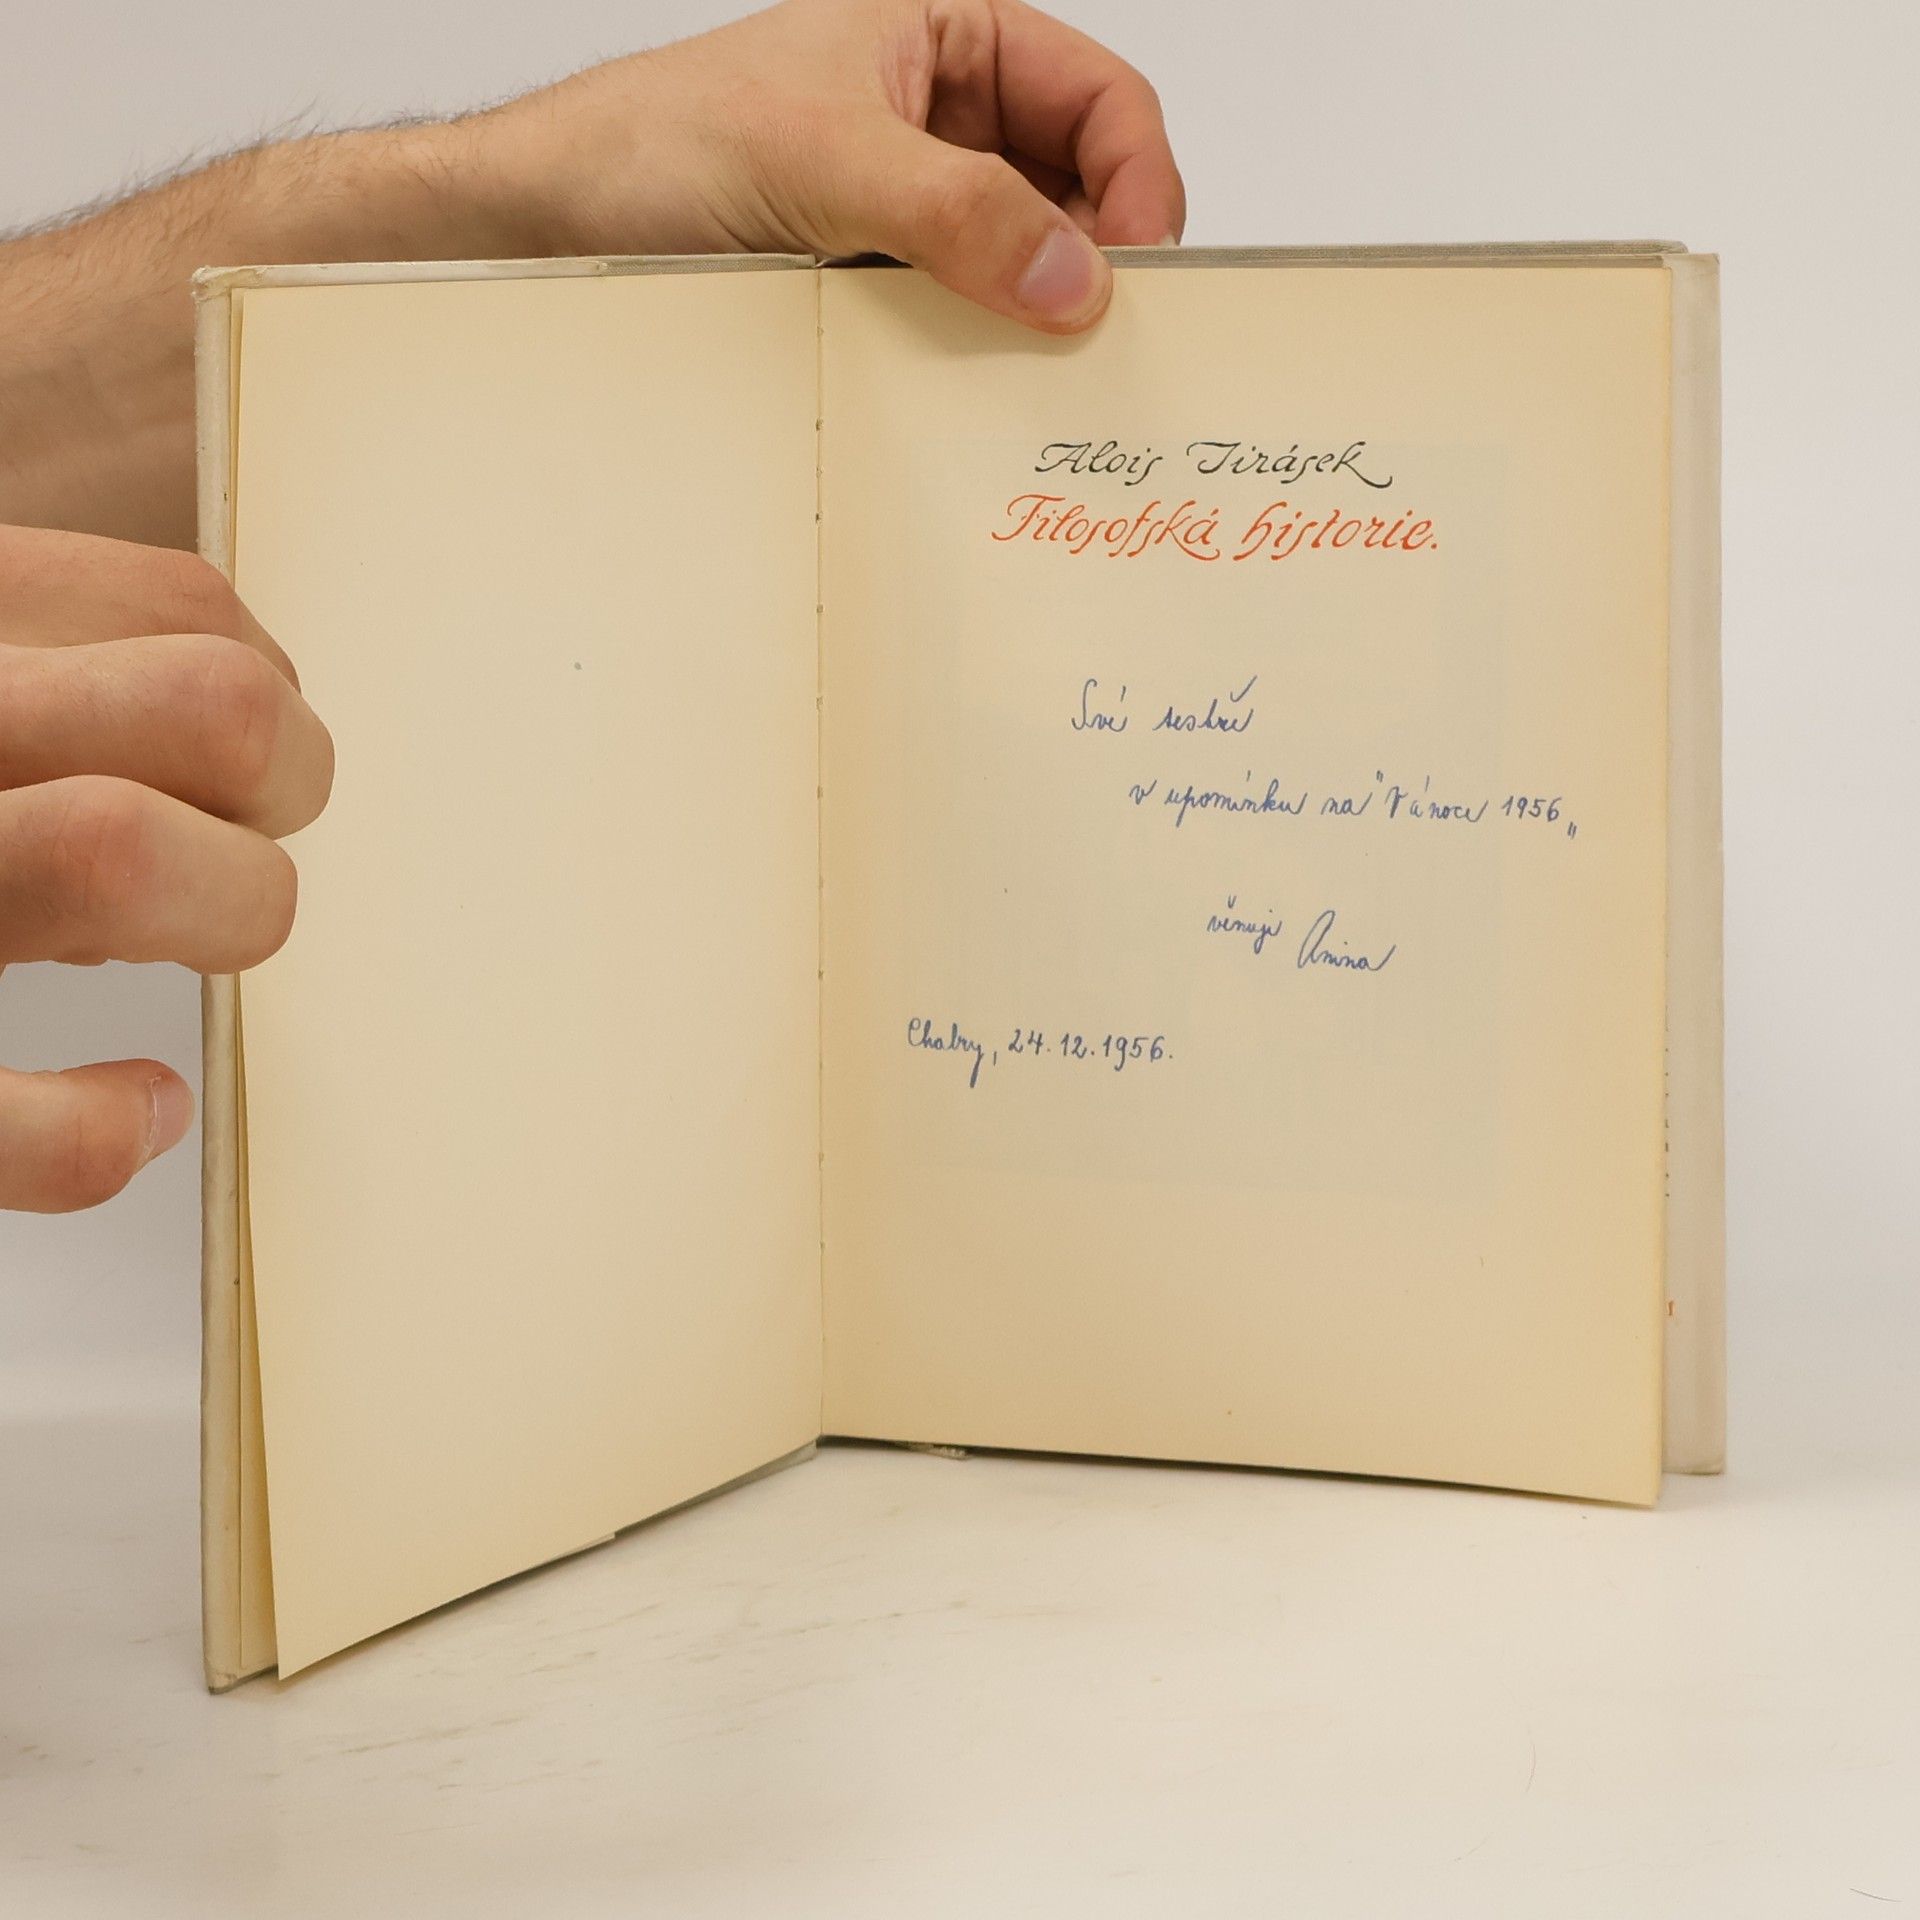 Alois Jirásek
Filosofská historie.
Své sestře
v upomínku na "Vánoce 1956„
věnuje Anina
Chabry, 24.12.1956.